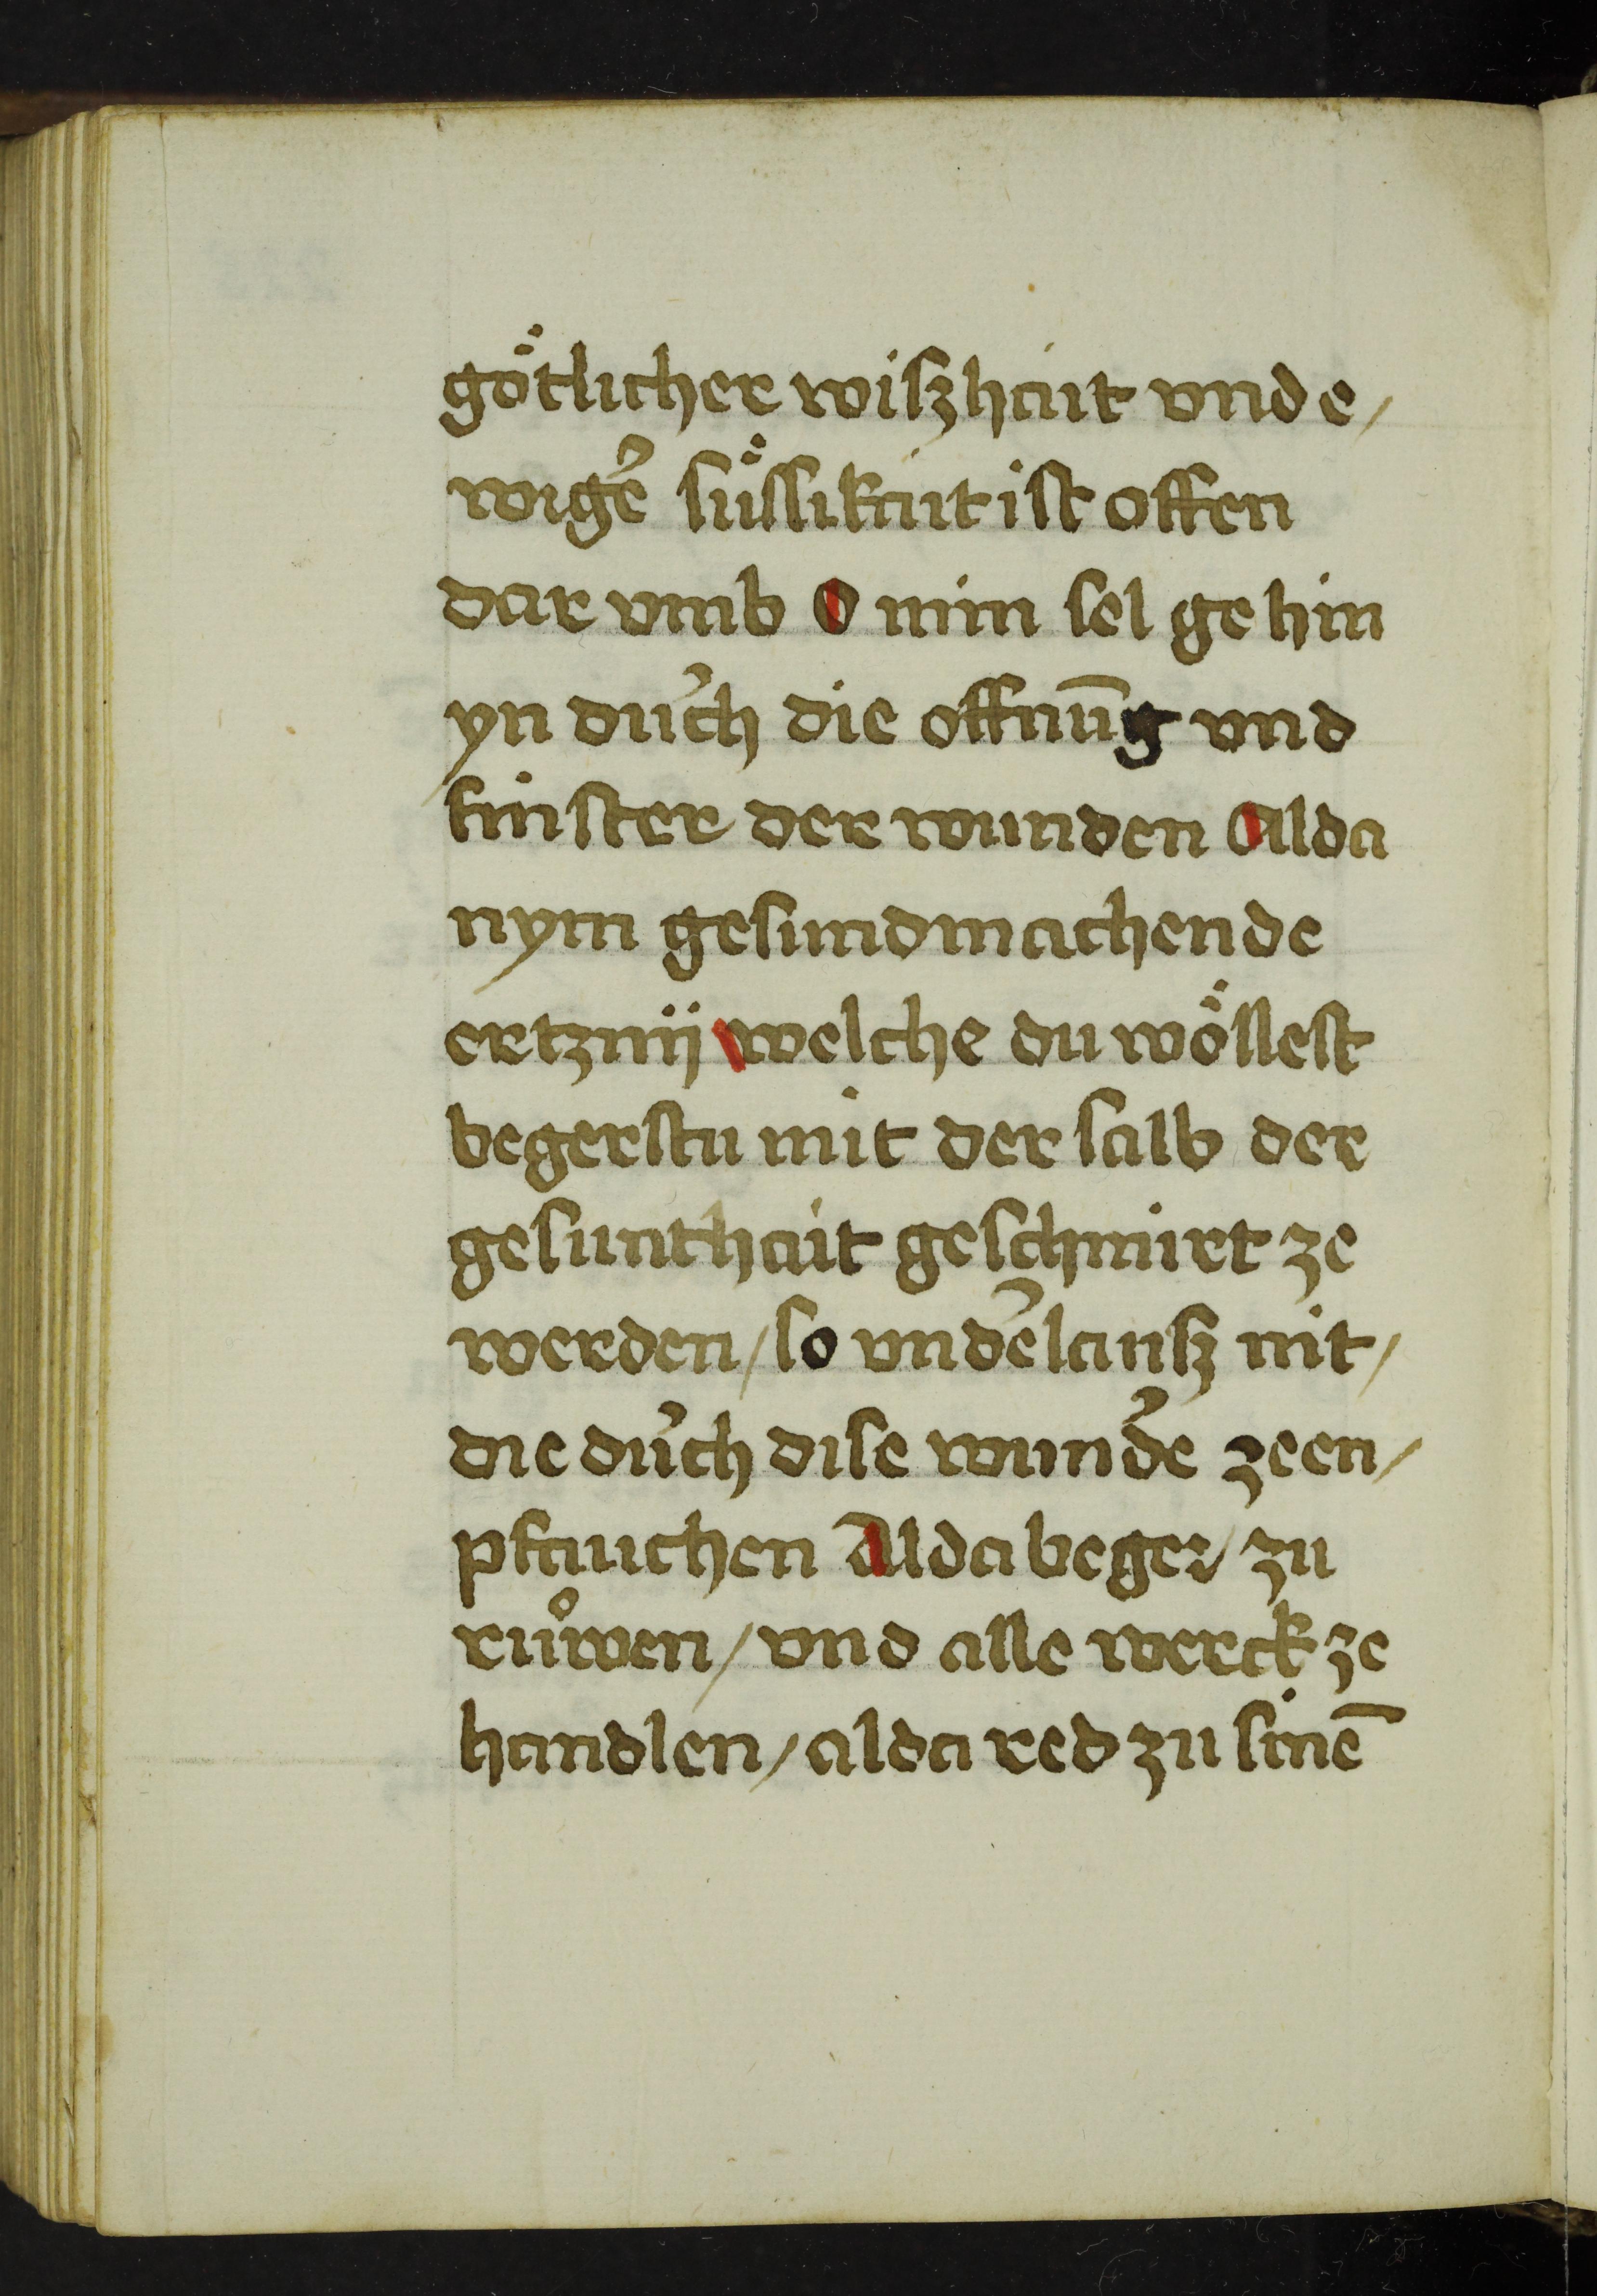 götlicher wiszhait vnd e/
wigeꝛ̉ süssikait ist offen
dar vmb O min sel ge hin
yn duꝛ̉ch die offnūg vnd
finster der wunden Alda
nym gesundmachende
ertznij welche du wöllest
begerstu mit der salb der
gesunthait geschmirt ze
werden / so vnd̉elausz nit /
die dủch dise wund̉e ze en /
pfauchen Alda beger / zu
růwen / vnd alle werck ze
handlen / alda red zu sinē